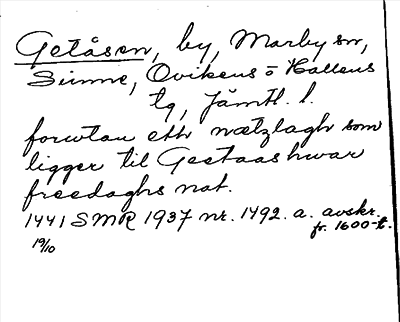 Getåsen, by, Marby sn,
Sunne, Ovikens o Hallens
tg, Jämtl. l.
forwtan ett nætzlagh som
ligger til Geetaas hwar
freedaghs nat.
1441 SMR 1937 nr. 1492. a. avskr.
fr. 1600-t.
19/10